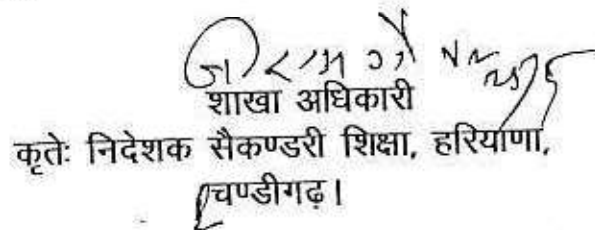 शाखा अधिकारी
कृतेः निदेशक सैकण्डरी शिक्षा, हरियाणा,
चण्डीगढ़।